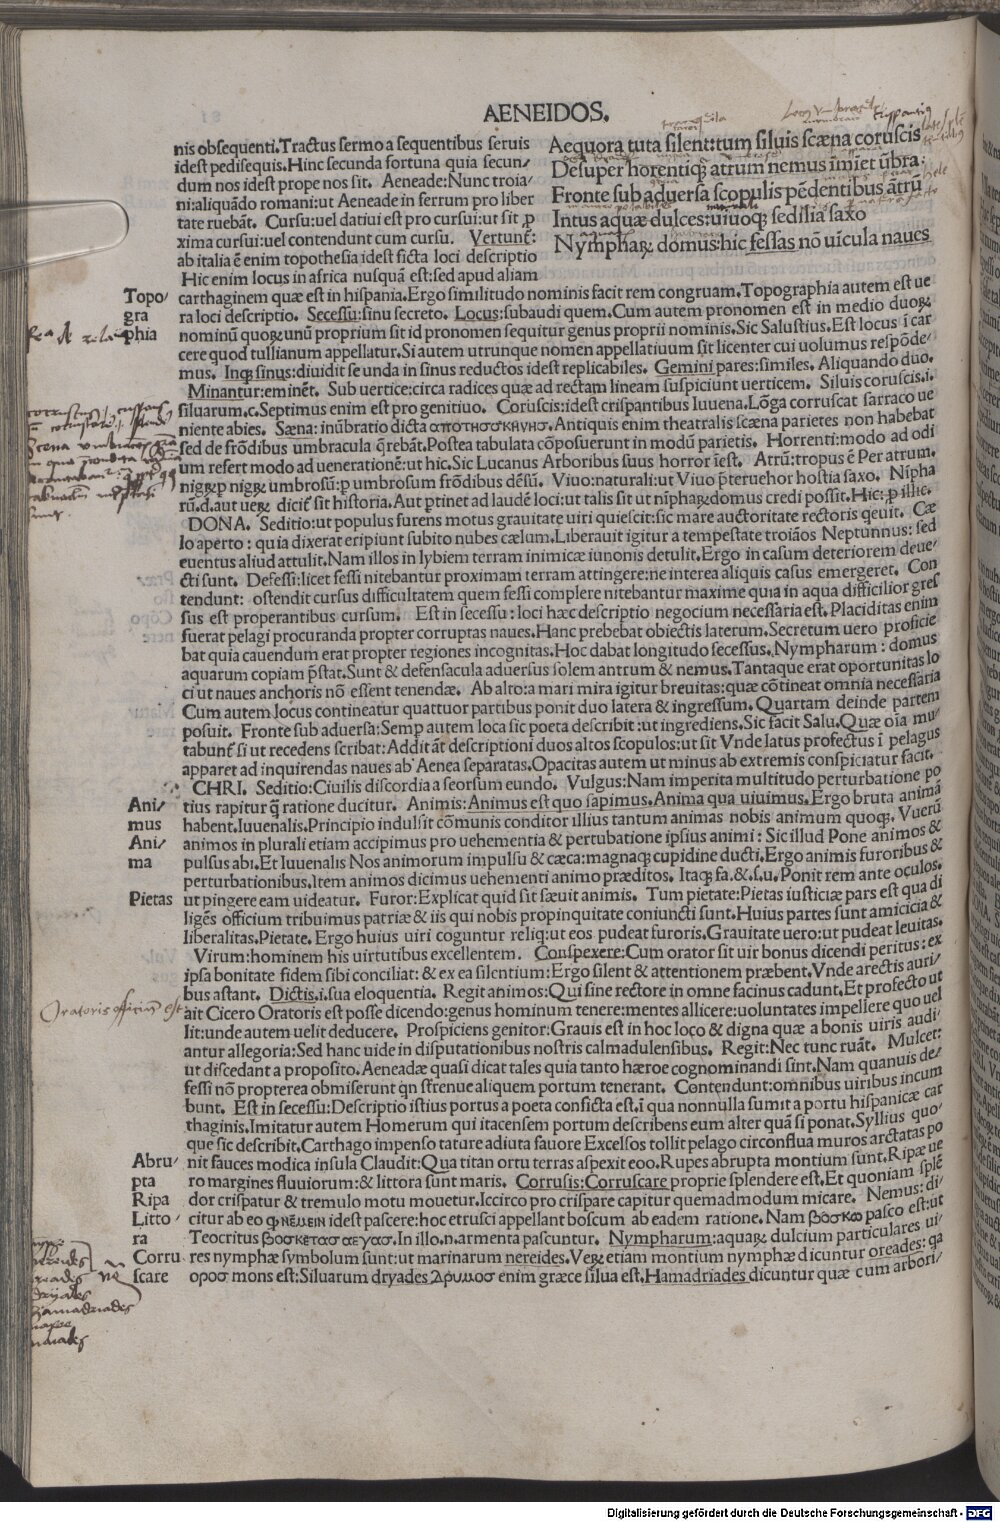 AENEIDOS.
nis obsequenti.Tractus sermo a sequentibus seruis
idest pedisequis.Hinc secunda fortuna quia secun/
dum nos idest prope nos sit. Aeneade:Nunc troia/
ni:aliquãdo romani:ut Aeneade in ferrum pro liber
tate ruebãt. Cursu:uel datiui est pro cursui:ut sit ꝓ
xima cursui:uel contendunt cum cursu. Vertunt̃:
ab italia ẽ enim topothesia idest ficta loci descriptio
Hic enim locus in africa nusquã est:sed apud aliam
Aequora tuta silent:tum siluis scæna coruscis
Desuper horentiqꝫ atrum nemus ĩmĩet ũbra.
Fronte sub aduersa scopulis pẽdentibus ãtrũ
Intus aquæ dulces:uiuoqꝫ sedilia saxo
Nymphaꝝ domus:hic fessas nõ uĩcula naues
Topo/
gra
phia
carthaginem quæ est in hispania.Ergo similitudo nominis facit rem congruam.Topographia autem est ue
ra loci descriptio. Secessu:sinu secreto. Locus:subaudi quem.Cum autem pronomen est in medio duoꝝ
nominũ quoꝝ:unũ proprium sit id pronomen sequitur genus proprii nominis.Sic Salustius.Est locus ĩ car
cere quod tullianum appellatur.Si autem utrunque nomen appellatiuum sit licenter cui uolumus respõde/
mus. Inqꝫ sinus:diuidit se unda in sinus reductos idest replicabiles. Gemini pares:similes. Aliquando duo.
Minantur:eminẽt. Sub uertice:circa radices quæ ad rectam lineam suspiciunt uerticem. Siluis coruscis.i.
siluarum.c.Septimus enim est pro genitiuo. Coruscis:idest crispantibus Iuuena.Lõga corruscat sarraco ue
niente abies. Sæna:inũbratio dicta αποτησσκηνησ.Antiquis enim theatralis scæna parietes non habebat
sed de frõdibus umbracula q̃rebãt.Postea tabulata cõposuerunt in modũ parietis. Horrenti:modo ad odi
um refert modo ad uenerationẽ:ut hic.Sic Lucanus Arboribus suus horror ĩest. Atrũ:tropus ẽ Per atrum.
nigꝝ:p nigꝝ umbrosũ:p umbrosum frõdibus dẽsũ. Viuo:naturali:ut Viuo p̃teruehor hostia saxo. Nĩpha
rũ.d.aut ueꝝ dicit̃ sit historia.Aut ꝑtinet ad laudẽ loci:ut talis sit ut nĩphaꝝ:domus credi possit.Hic:ꝓ illic.
DONA. Seditio:ut populus furens motus grauitate uiri quiescit:sic mare auctoritate rectoris qeuit. Cæ
lo aperto : quia dixerat eripiunt subito nubes cælum.Liberauit igitur a tempestate troiãos Neptunnus: sed
euentus aliud attulit.Nam illos in lybiem terram inimicæ iunonis detulit.Ergo in casum deteriorem deue/
cti sunt. Defessi:licet fessi nitebantur proximam terram attingere:ne interea aliquis casus emergeret. Con
tendunt: ostendit cursus difficultatem quem fessi complere nitebantur maxime quia in aqua difficilior gres
sus est properantibus cursum. Est in secessu : loci hæc descriptio negocium necessaria est.Placiditas enim
fuerat pelagi procuranda propter corruptas naues.Hanc prebebat obiectis laterum.Secretum uero proficie
bat quia cauendum erat propter regiones incognitas.Hoc dabat longitudo secessus.Nympharum : domus
aquarum copiam p̃stat.Sunt & defensacula aduersus solem antrum & nemus.Tantaque erat oportunitas lo
ci ut naues anchoris nõ essent tenendæ. Ab alto:a mari mira igitur breuitas:quæ cõtineat omnia necessaria
Cum autem locus contineatur quattuor partibus ponit duo latera & ingressum. Quartam deinde partem
posuit. Fronte sub aduersa:Semp autem loca sic poeta describit :ut ingrediens.Sic facit Salu.Quæ oĩa mu/
tabunt̃ si ut recedens scribat:Addit ãt descriptioni duos altos scopulos:ut sit Vnde latus profectus ĩ pelagus
apparet ad inquirendas naues ab Aenea separatas.Opacitas autem ut minus ab extremis conspiciatur facit.
CHRI. Seditio:Ciuilis discordia a seorsum eundo. Vulgus:Nam imperita multitudo perturbatione po
Ani/
mus
Ani/
ma
tius rapitur q̃ ratione ducitur. Animis:Animus est quo sapimus.Anima qua uiuimus.Ergo bruta animã
habent.Iuuenalis.Principio indulsit cõmunis conditor illius tantum animas nobis animum quoqꝫ. Vuerũ
animos in plurali etiam accipimus pro uehementia & pertubatione ipsius animi : Sic illud Pone animos &
pulsus abi.Et Iuuenalis Nos animorum impulsu & cæca:magnaqꝫ cupidine ducti.Ergo animis furoribus &
perturbationibus.Item animos dicimus uehementi animo præditos. Itaqꝫ fa.&.s.u.Ponit rem ante oculos.
Pietas
ut pingere eam uideatur. Furor:Explicat quid sit sæuit animis. Tum pietate:Pietas iusticiæ pars est qua di
ligẽs officium tribuimus patriæ & iis qui nobis propinquitate coniuncti sunt.Huius partes sunt amicicia &
liberalitas.Pietate. Ergo huius uiri coguntur reliq:ut eos pudeat furoris.Grauitate uero:ut pudeat leuitas.
Virum:hominem his uirtutibus excellentem. Conspexere:Cum orator sit uir bonus dicendi peritus : ex
ipsa bonitate fidem sibi conciliat: & ex ea silentium:Ergo silent & attentionem præbent.Vnde arectis auri/
bus astant. Dictis.i.sua eloquentia. Regit animos:Qui sine rectore in omne facinus cadunt.Et profecto ut
Oratoris officiũ est
ait Cicero Oratoris est posse dicendo:genus hominum tenere:mentes allicere:uoluntates impellere quo uel
lit:unde autem uelit deducere. Prospiciens genitor:Grauis est in hoc loco & digna quæ a bonis uiris audi/
antur allegoria:Sed hanc uide in disputationibus nostris calmadulensibus. Regit:Nec tunc ruãt. Mulcet:
ut discedant a proposito.Aeneadæ quasi dicat tales quia tanto hæroe cognominandi sint.Nam quanuis de/
fessi nõ propterea obmiserunt q̃n strenue aliquem portum tenerant. Contendunt:omnibus uiribus incum
bunt. Est in secessu:Descriptio istius portus a poeta conficta est.ĩ qua nonnulla sumit a portu hispanicæ car
thaginis.Imitatur autem Homerum qui itacensem portum describens eum alter quã si ponat.Syllius quo/
que sic describit.Carthago impenso tature adiuta fauore Excelsos tollit pelago circonflua muros arctatas po
Abru/
pta
Ripa
Litto/
ra
Corru
scare
nit fauces modica insula Claudit:Qua titan ortu terras aspexit eoo.Rupes abrupta montium sunt.Ripæ ue
ro margines fluuiorum:& littora sunt maris. Corrusis:Corruscare proprie splendere est.Et quoniam splẽ
dor crispatur & tremulo motu mouetur.Iccirco pro crispare capitur quemadmodum micare. Nemus: di/
citur ab eo ꝙ νεμειν idest pascere:hoc etrusci appellant boscum ab eadem ratione. Nam βοσκω pasco est:ut
Teocritus βοσκετασσ αεγασ.In illo.n.armenta pascuntur. Nympharum:aquaꝝ dulcium particulares ui/
res nymphæ symbolum sunt:ut marinarum nereides.Veꝝ etiam montium nymphæ dicuntur oreades: qa
οροσ mons est:Siluarum dryades δρυμοσ enim græce silua est.Hamadriades dicuntur quæ cum arbori/
nereides
dryades
Hamadriades
naiades
Digitalisierung gefördert durch die Deutsche Forschungsgemeinschaft - DFG